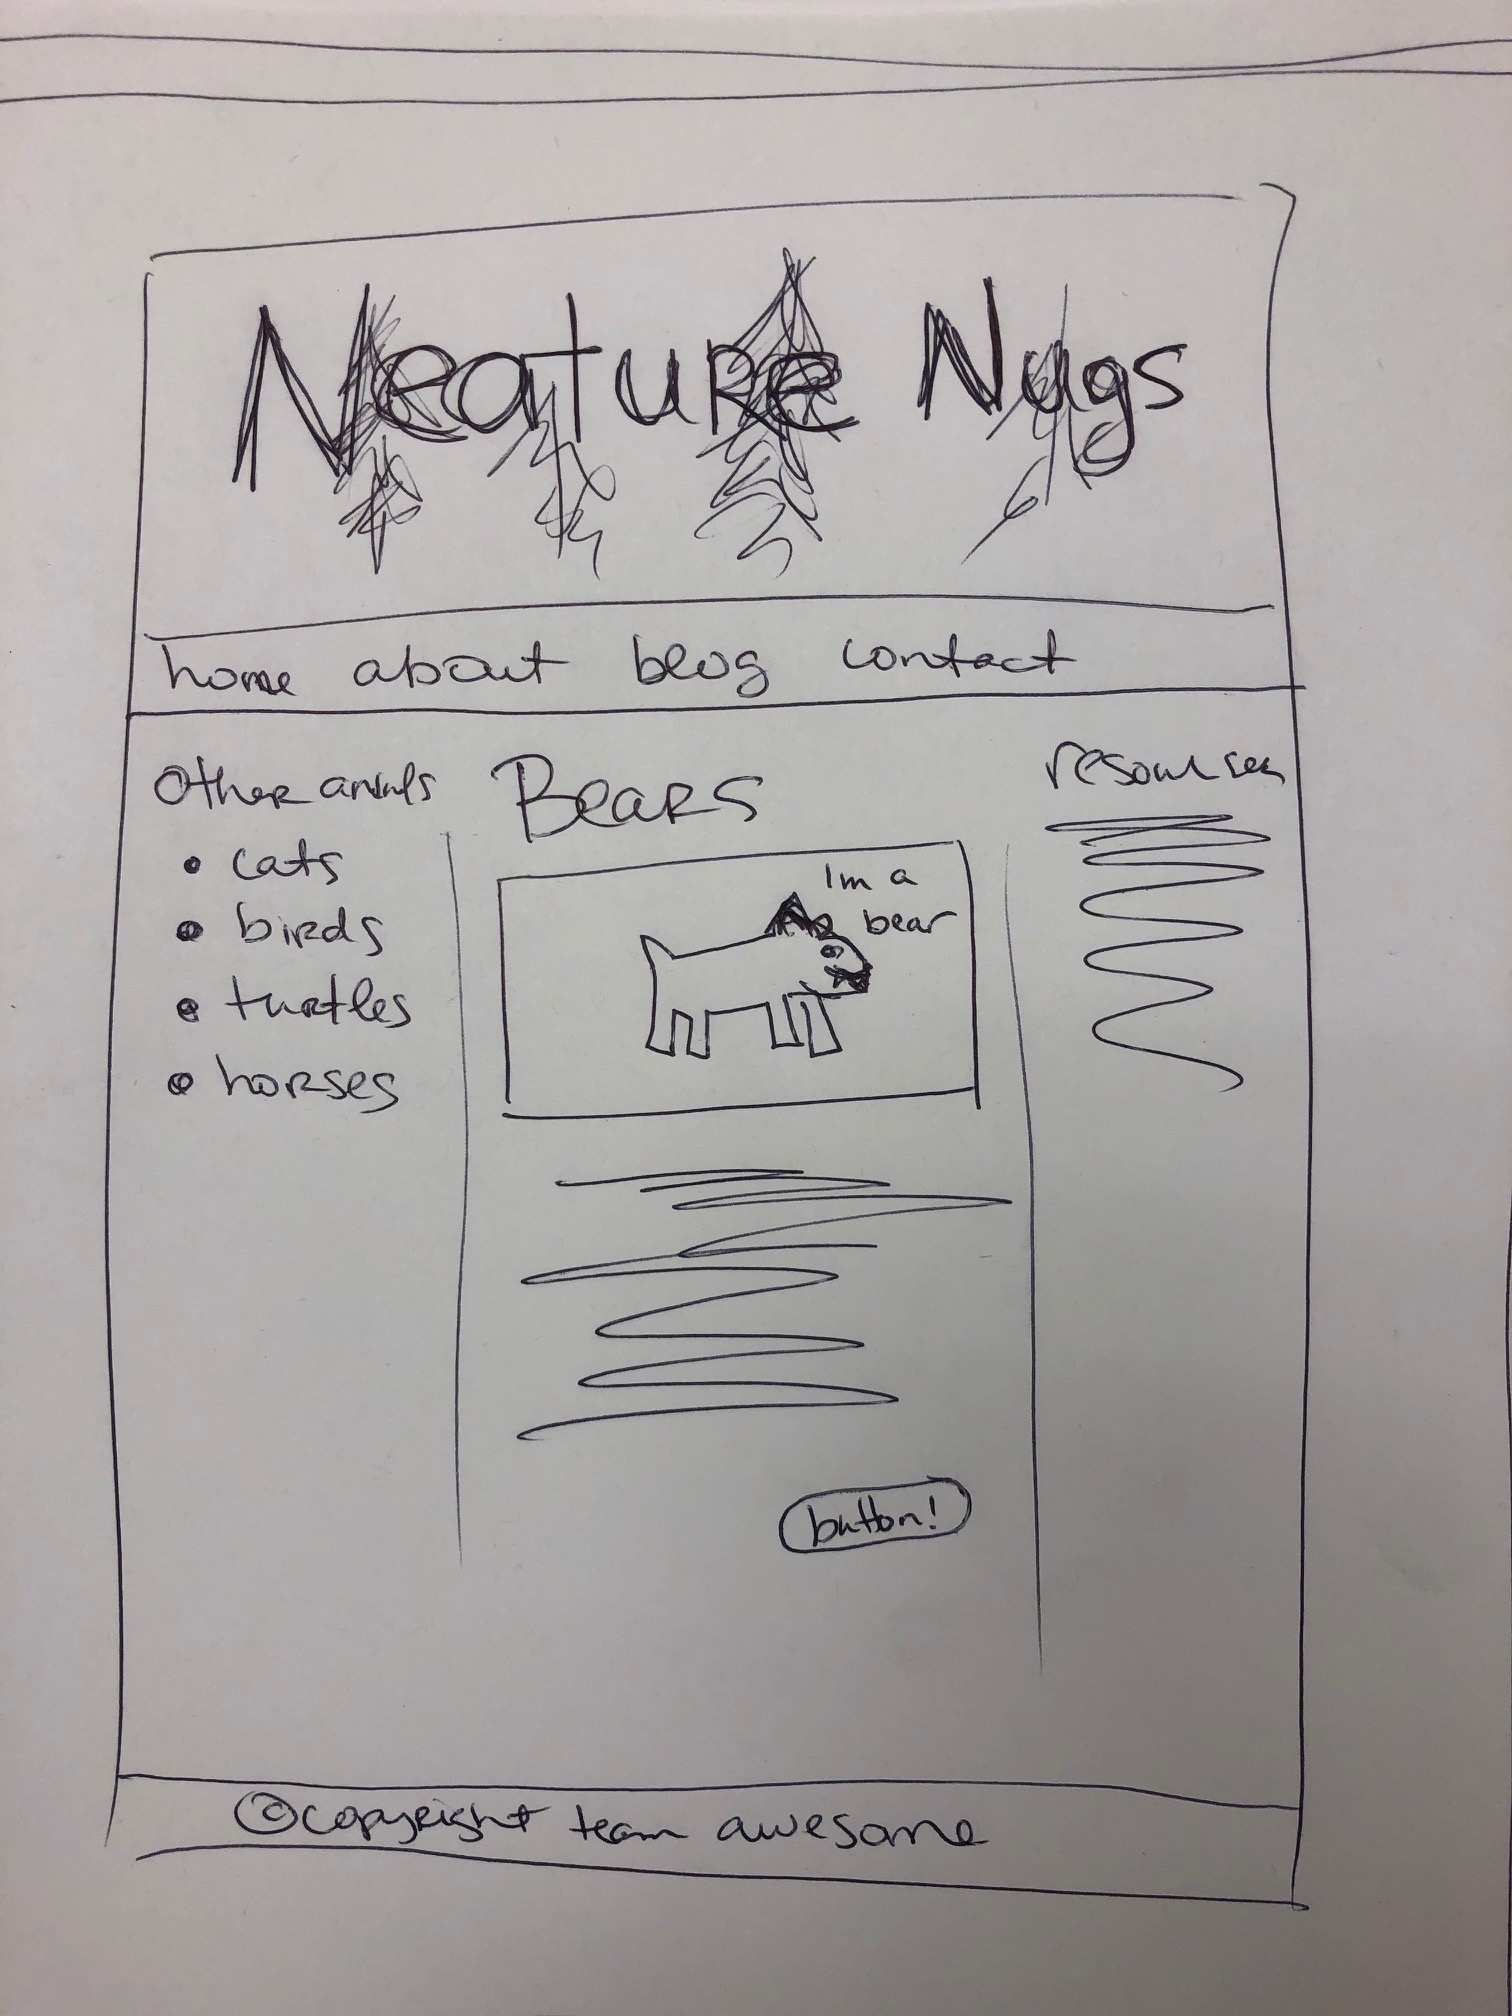 Neature Nugs
home about blog contact
Other animls
• cats
• birds
• turtles
• horses
Bears
I'm a
bear
button!
resourses
©copyright team awesome